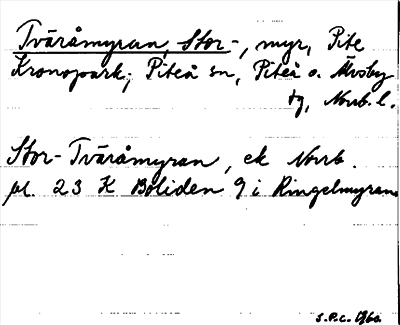 Tväråmyran, Stor-, myr, Pite
Kronopark; Piteå sn, Piteå o. Älvsby
tg, Norrb. l.
Stor-Tväråmyran, ek Norrb.
bl. 23 K Boliden 9 i Ringelmyran
S.P.C. 1960